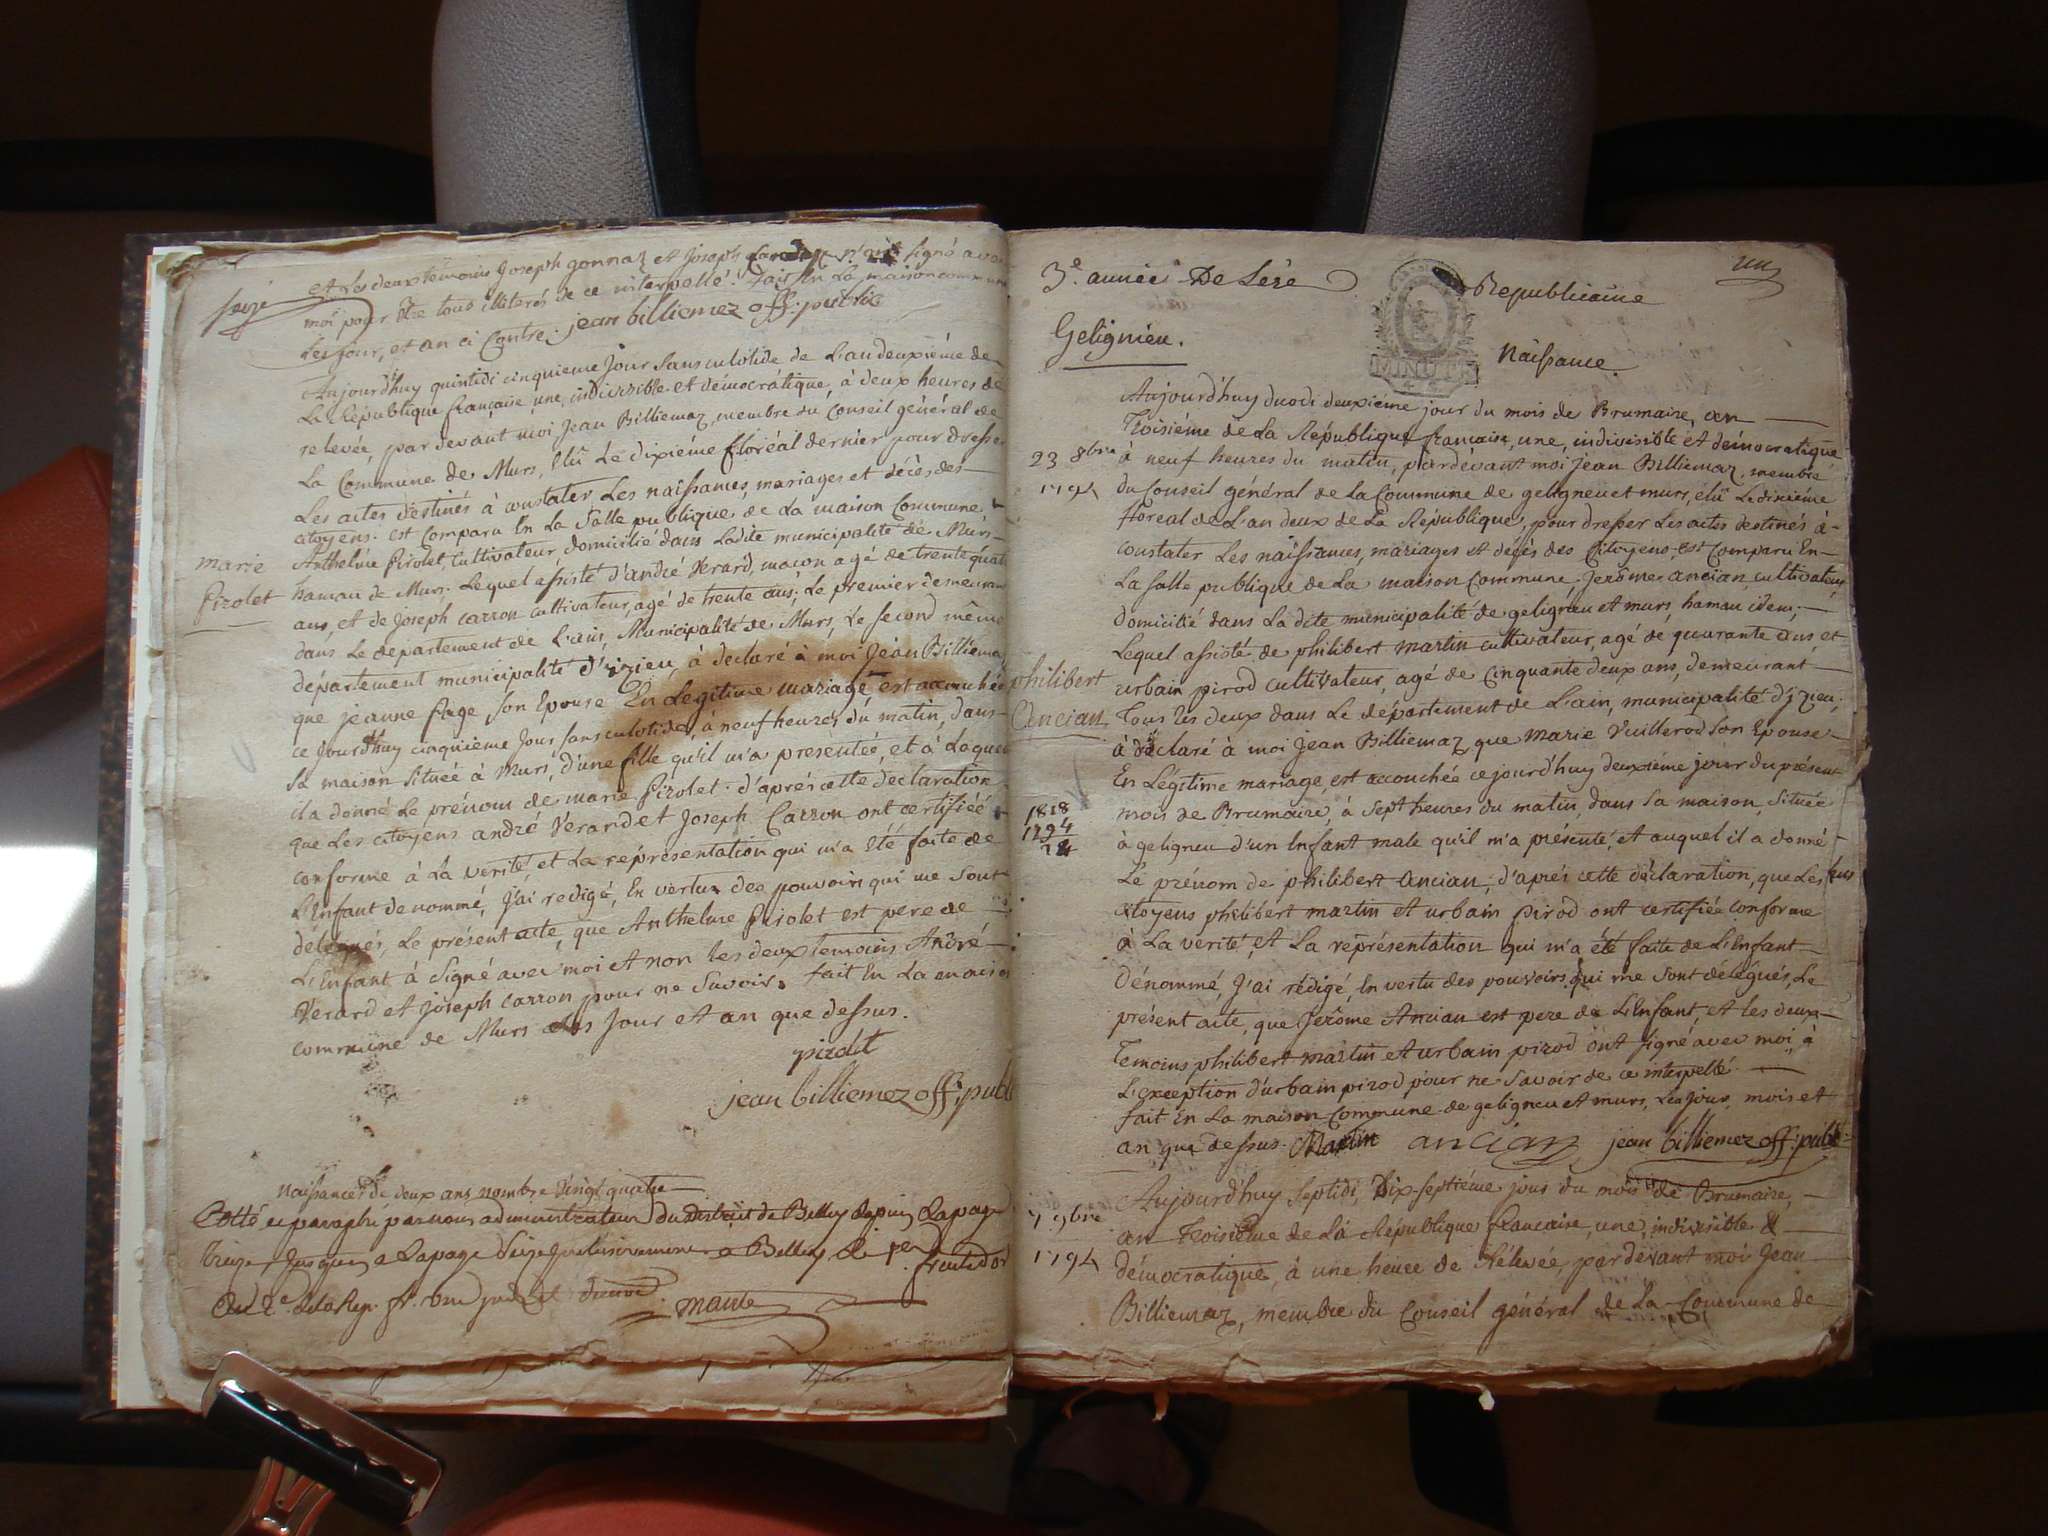 seize
et les deux temoins Joseph gonnaz et Joseph n'ont signé avec
moi pour être tous illiterés de ce interpellé. fait En La maison commune
Les jour, et an ci Contre. jean billiemez off. public
Aujourd'huy quintidi cinquieme jour Sansculotide de L'an deuxième de
La République française, une, indivisible et démocrâtique, à deux heures de
relevée, par devant moi Jean Billiemaz, membre du Conseil général de
La Commune de Murs, Elû Le dixiéme floréal dernier pour dresser
Les actes destinés à constater Les naissances, mariages et décès des
citoyens. est Comparu En La Salle publique de La maison Commune,
Anthelme Pirolet, Cultivateur, domicilié dans Ladite municipalité de Murs
marie
Pirolet
hamau de Murs. Lequel assisté d'andré Verard, macon agé de trente quatre
ans, et de Joseph carron cultivateur, agé de trente ans; Le premier demeurant
dans Le departement de L'ain, Municipalité de Murs, Le second même
département municipalité d'izieu, à déclaré à moi Jean Billiemaz
que jeanne fage son Epouse En Legitime mariage est accouchée
ce jourd'huy cinquieme jour sansculotides, à neuf heures du matin, dans
sa maison située à Murs, d'une fille qu'il m'a présentée, et à Laquelle
il a donné Le prénom de marie Pirolet. d'après cette declaration
que Les citoyens andré Verard et Joseph Carron ont certifiée
conforme à La verité, et La représentation qui m'a Eté faite de
L'Enfant denommé, J'ai redigé, En vertu des pouvoirs qui me sont
délégués, Le présent acte, que Anthelme Pirolet est pere de
L'Enfant à signé avec moi et non les deux temoins André
Verard et Joseph carron pour ne savoir. fait En La maison
commune de Murs Les Jour et an que dessus.
pirolet
jean billiemez off. publ
Naissances de deux ans, nombre Vingt quatre
Cotté et paraphé par nous administrateur du district de Belley depuis La page
treize jusques a La page seize inclusivement a Belley Le 1er fructidor
an 2e de la Rep. fr. une ind. et
mante
3e. année De L'ére
Republicaine
un
Gelignieu.
MINUTE
Naissance.
Aujourd'huy duodi deuxiéme jour du mois de Brumaire, an
Troisiéme de La République francaise, une, indivisible et démocratique
23 8bre
1794
à neuf heures du matin, pardevant moi Jean Billiemaz membre
du Conseil général de La Commune de geligneu et murs, élû Le dixieme
floréal de L'an deux de La République, pour dresser Les actes destinés à
constater Les naissances, mariages et decès des Citoyens est Comparu En
La salle publique de La maison Commune, Jerôme ancian, cultivateur,
domicilié dans La dite municipalité de geligneu et murs, hamau idem;
Lequel assisté de philibert martin cultivateur, agé de quarante ans, et
urbain pirod cultivateur, agé de Cinquante deux ans, demeurant
philibert
Ancian
Tous les deux dans Le département de L'ain, municipalité d'izieu;
à déclaré à moi Jean Billiemaz que Marie Vuillerod son Epouse
En Légitime mariage, est accouchée ce jourd'huy deuxième jour du présent
mois de Brumaire, à Sept heures du matin, dans sa maison, située
1818
1794
24
à geligneu d'un Enfant male qu'il m'a présenté, et auquel il a donné
Le prénom de philibert ancian; d'après cette déclaration, que Les
citoyens philibert martin et urbain pirod ont certifiée conforme
à La verité, et La représentation qui m'a été faite de L'Enfant
Dénommé, J'ai rédigé, En vertu des pouvoirs qui me sont délégués, Le
présent acte, que Jerôme Ancian est pere de L'Enfant, et les deux
Temoins philibert martin et urbain pirod ont signé avec moi, à
L'exception d'urbain pirod pour ne savoir de ce interpellé.
fait En La maison Commune de geligneu et murs, Les jour, mois et
an que dessus. Martin ancian jean billiemez off. publ
Aujourd'huy Septidi, Dix-septiéme jour du mois de Brumaire,
7 9bre
1794
an Troisième de La République francaise, une, indivisible &
démocratique, à une heure de Rélevée, par devant moi Jean
Billiemaz, membre du Conseil général de La Commune de